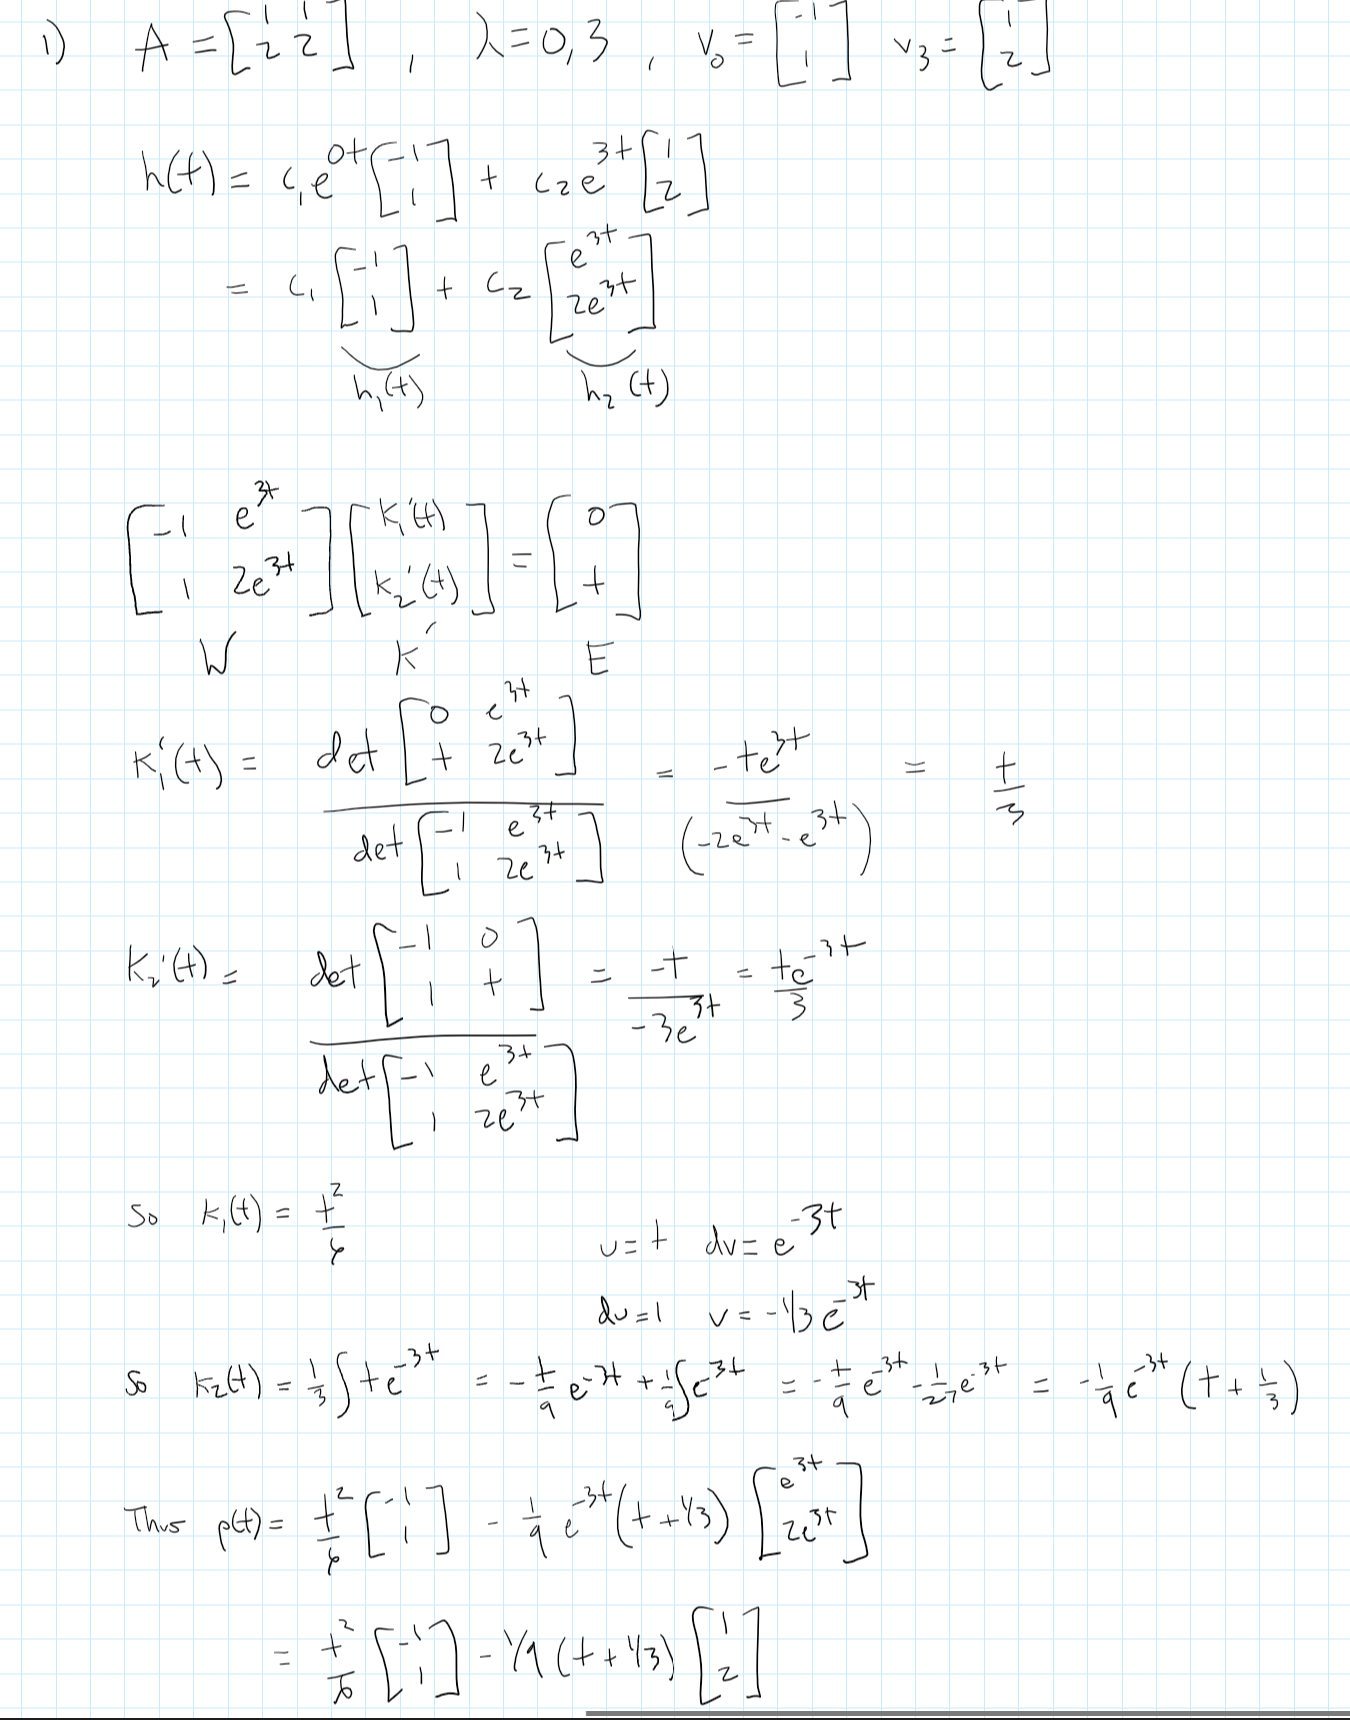 1) A = [1 1; 2 2] , λ = 0, 3 , v₀ = [-1; 1] v₃ = [1; 2]
h(t) = c₁e^{0t} [-1; 1] + c₂e^{3t} [1; 2]
= c₁ [-1; 1] + c₂ [e^{3t}; 2e^{3t}]
h₁(t) h₂(t)
[-1 e^{3t}; 1 2e^{3t}] [k₁'(t); k₂'(t)] = [0; t]
W K' E
k₁'(t) = det [0 e^{3t}; t 2e^{3t}] / det [-1 e^{3t}; 1 2e^{3t}] = -te^{3t} / (-2e^{3t} - e^{3t}) = t/3
k₂'(t) = det [-1 0; 1 t] / det [-1 e^{3t}; 1 2e^{3t}] = -t / -3e^{3t} = te^{-3t}/3
So k₁(t) = t²/6
u = t dv = e^{-3t}
du = 1 v = -1/3 e^{-3t}
So k₂(t) = 1/3 ∫ te^{-3t} = -t/9 e^{-3t} + 1/9 ∫ e^{-3t} = -t/9 e^{-3t} - 1/27 e^{-3t} = -1/9 e^{-3t} (t + 1/3)
Thus p(t) = t²/6 [-1; 1] - 1/9 e^{-3t} (t + 1/3) [e^{3t}; 2e^{3t}]
= t²/6 [-1; 1] - 1/9 (t + 1/3) [1; 2]